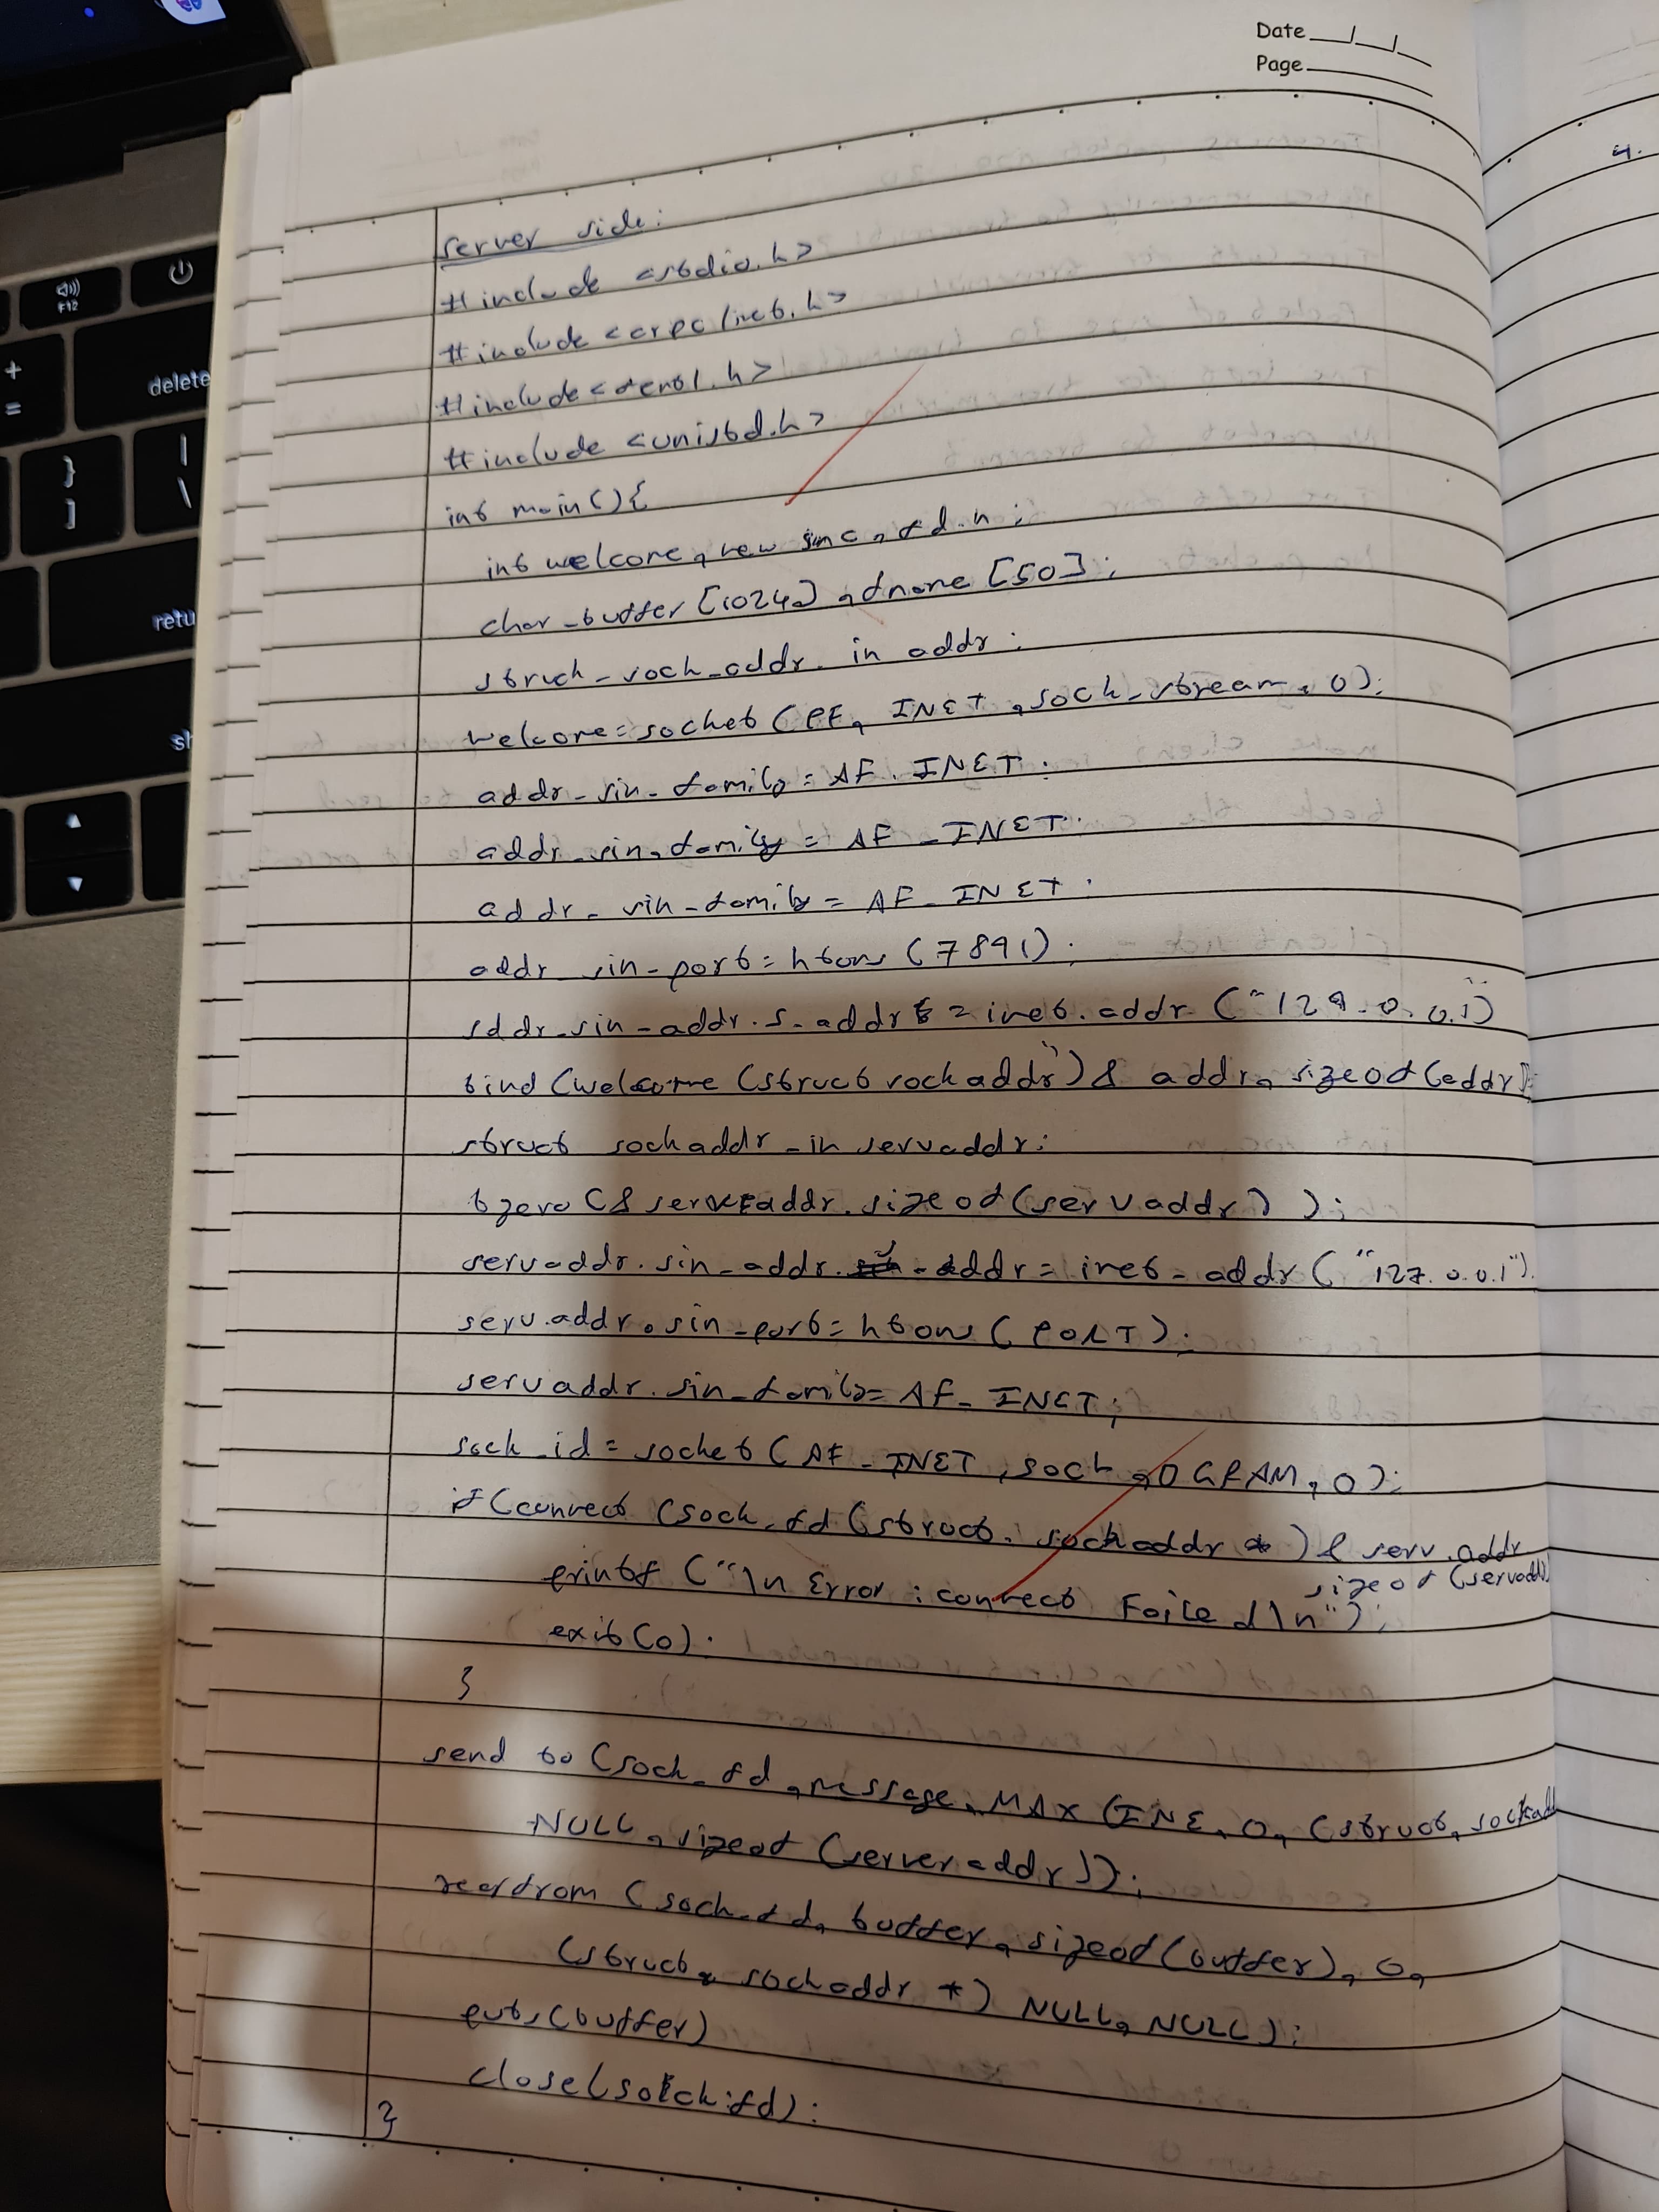 Date
Page
4.
server side:
#include <stdio.h>
#include <arpa/inet.h>
#include <fcntl.h>
#include <unistd.h>
int main(){
int welcome, new sinc, fd.n;
char_buffer [1024], fname [50];
struck_sock_addr. in addr;
welcome=socket (PF, INET, sock_stream, 0);
addr_sin_family = AF. INET;
addr_sin, family = AF_INET.
addr_sin_family = AF_INET.
addr_sin_port = htons (7891);
sddr_sin_addr.s_addr = inet.addr ("127.0.0.1")
bind (welcome (struct sockaddr) & addr, sizeof (addr);
struct sockaddr_in servaddr;
bzero (& servaddr. sizeof (servaddr) );
servaddr. sin_addr. addr = inet_addr ("127.0.0.1").
serv.addr. sin_port = htons (PORT);
servaddr. sin_family = AF_INET;
sock_id = socket (AF_INET, sock, DGRAM, 0);
if (connect (sock_fd (struct. sockaddr *) & serv.addr
sizeof (servaddr)
printf ("\n Error : connect Failed \n");
exit (0);
}
send to (sock_fd, message, MAX LINE, 0, (struct, sockadd
NULL, sizeof (server addr));
(sock_fd, buffer, sizeof (buffer), 0,
(struct, sockaddr *) NULL, NULL);
puts (buffer)
close (sock:fd);
}
delete
F12
+
=
}
]
|
\
retu
sh